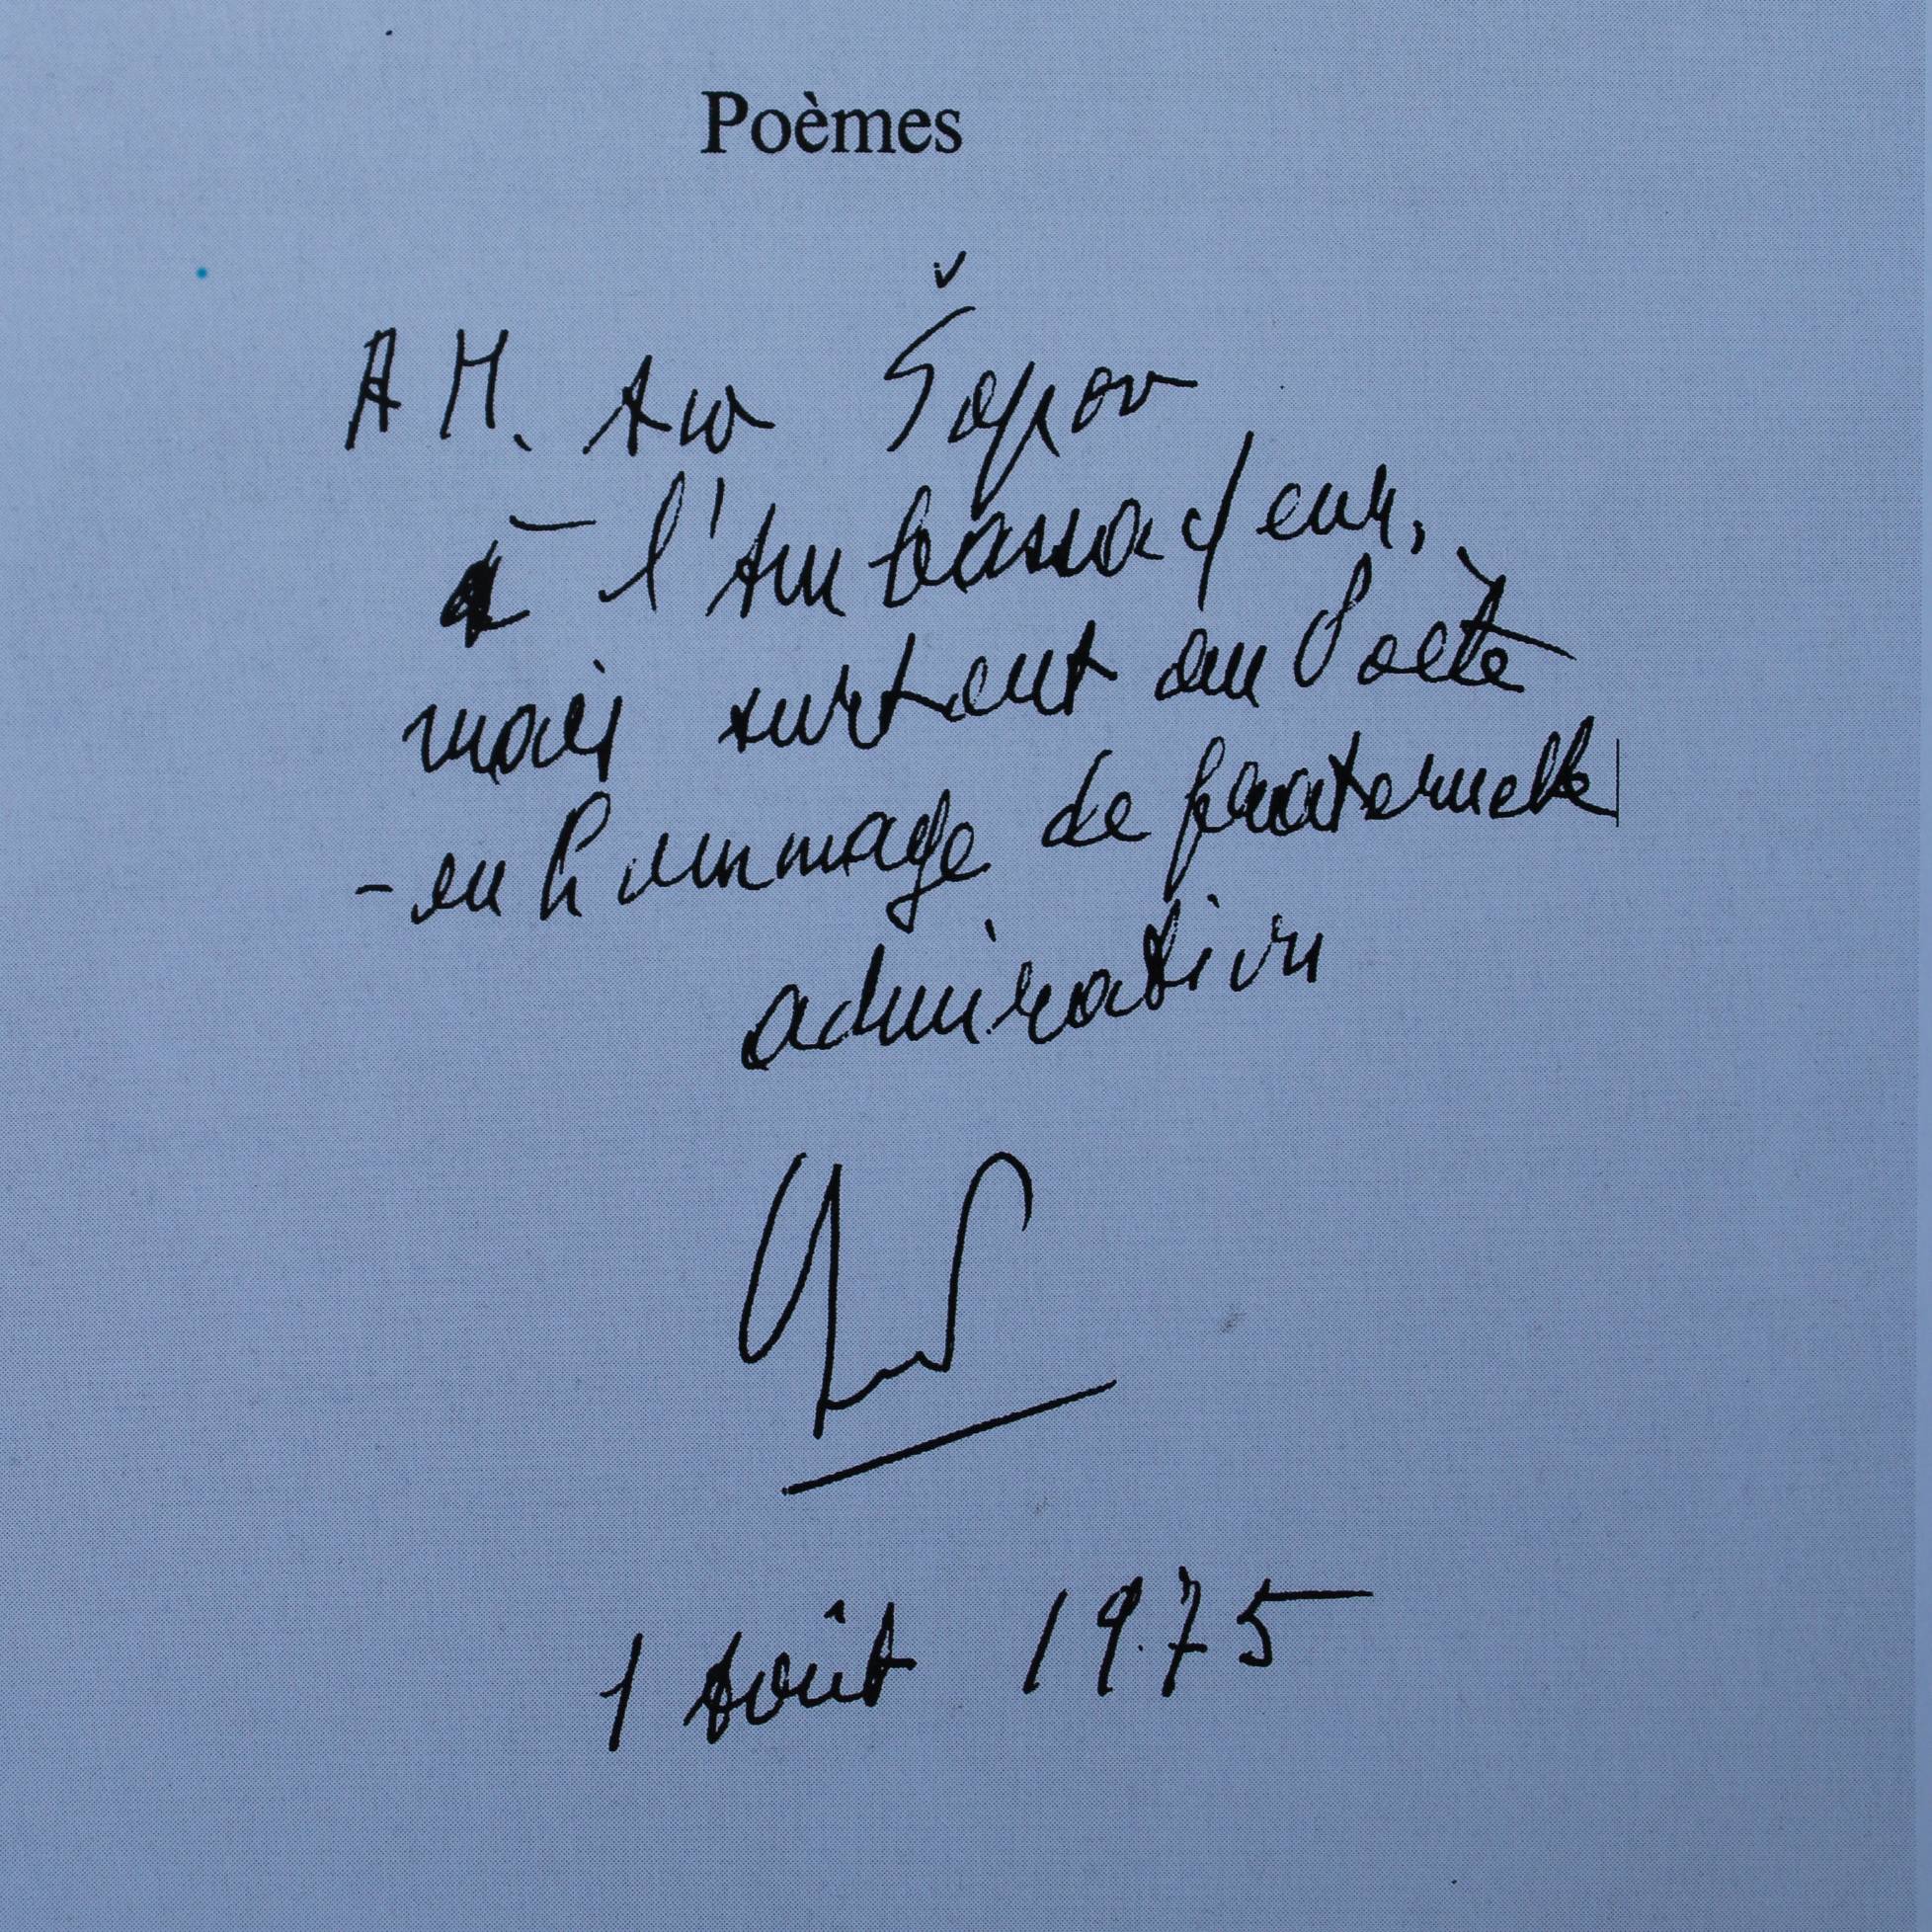 Poèmes
A M. Aco Šopov
à l'Ambassadeur,
mais surtout au Poète
- en hommage de fraternelle
admiration
1 Août 1975